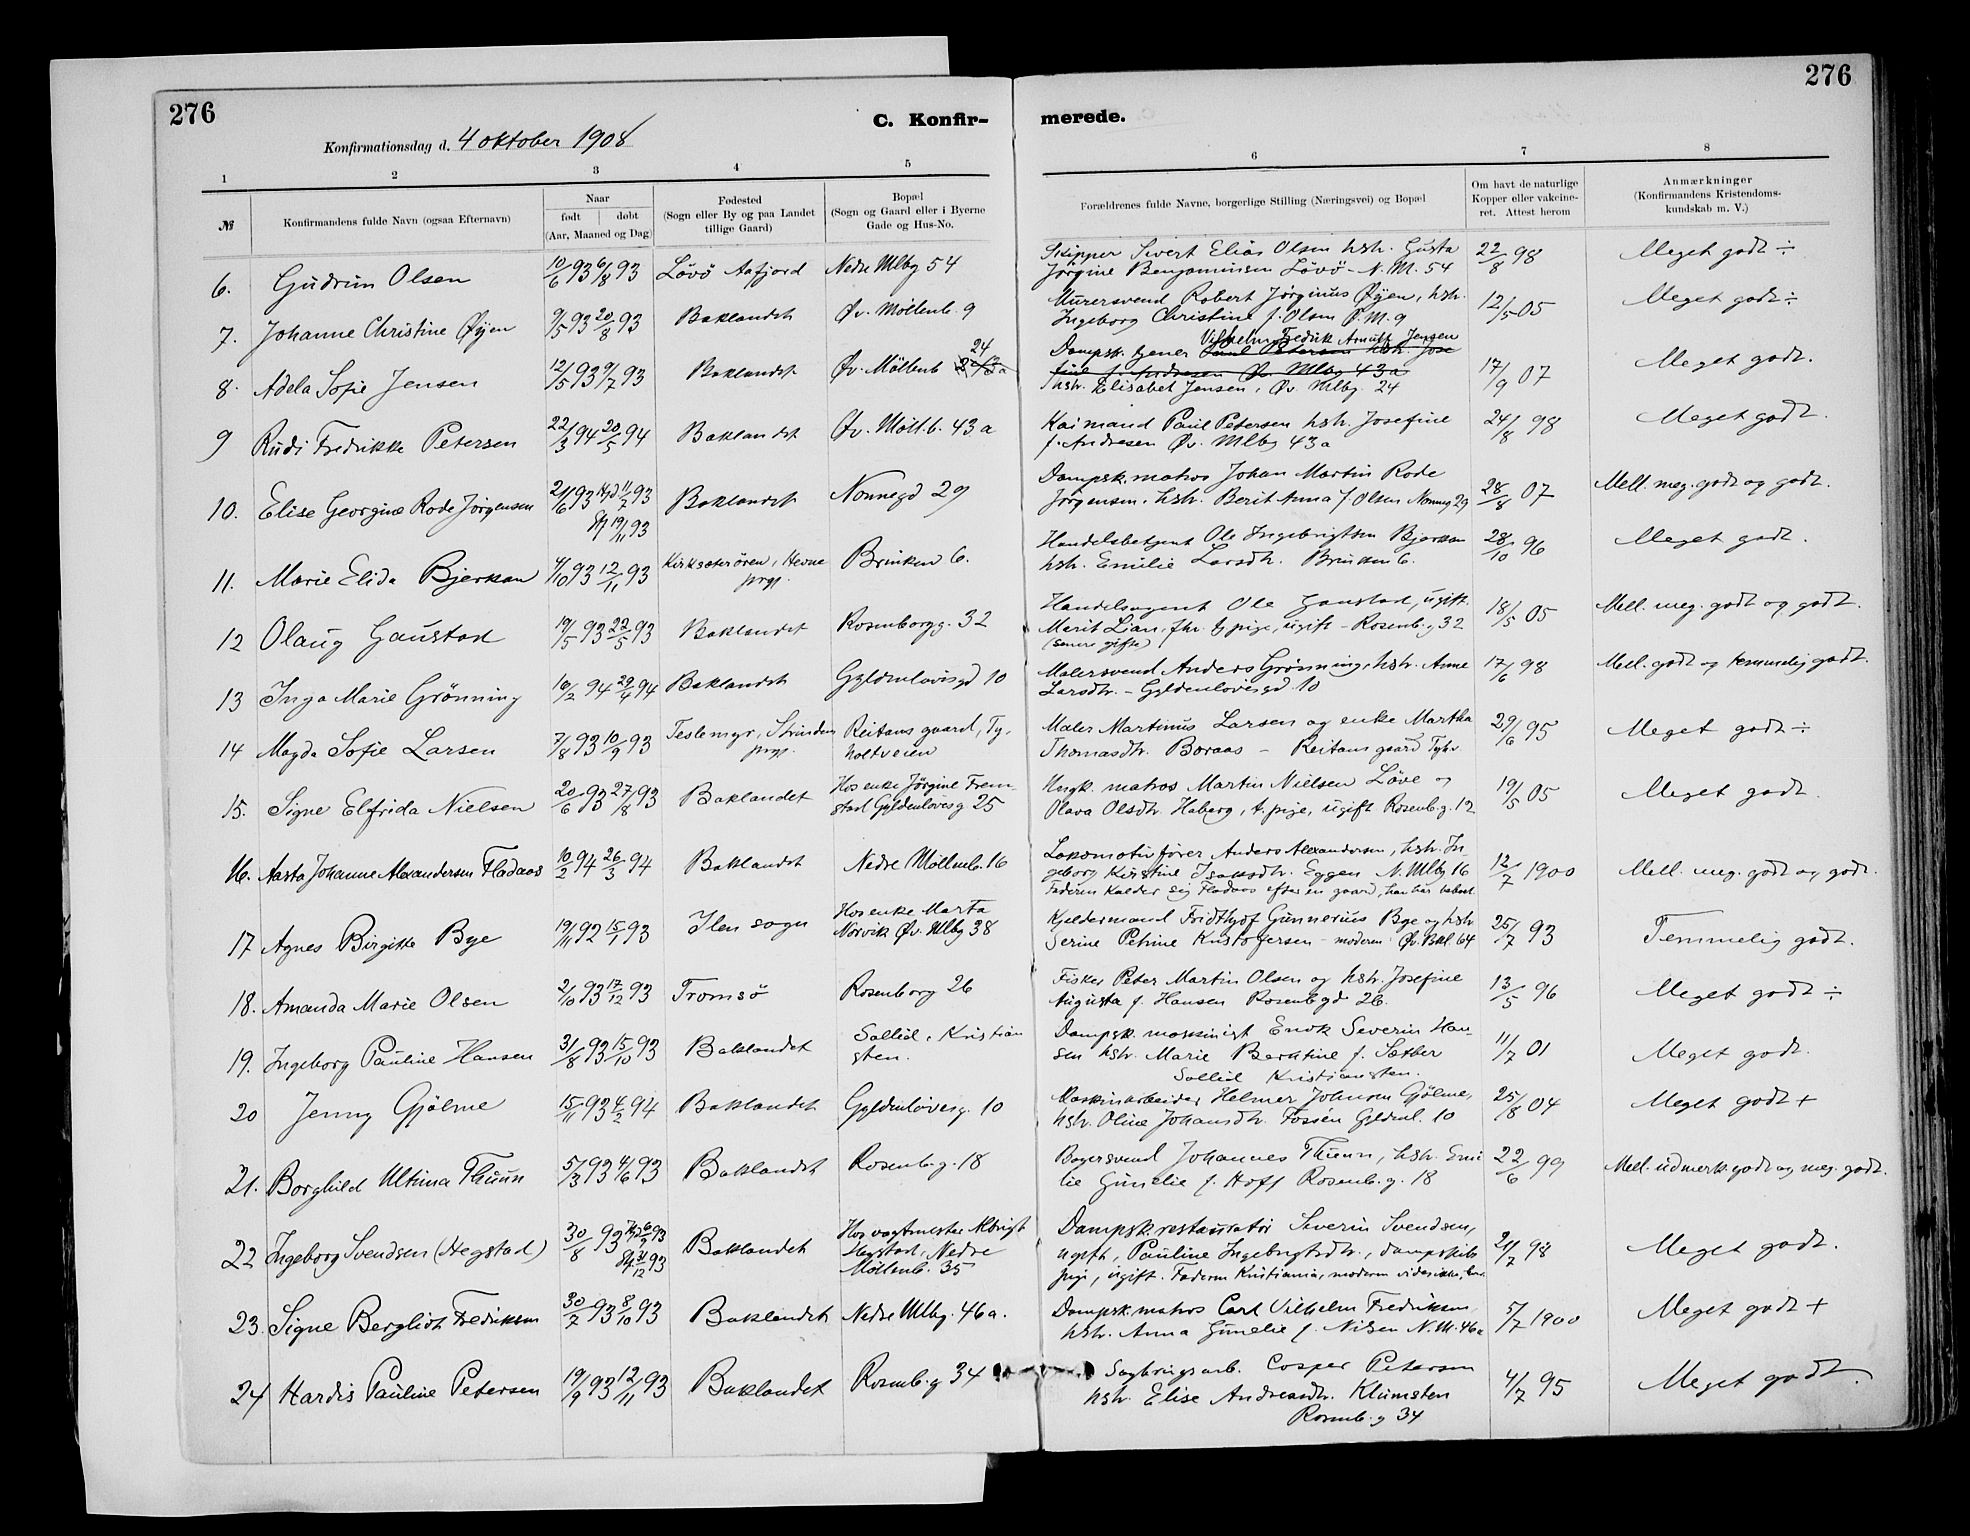 276
276
C. Konfir-
merede.
Konfirmationsdag d. 4 oktober 1908
1 2 3 4 5 6 7 8
№
Konfirmandens fulde Navn (ogsaa Efternavn)
Naar
født døbt
(Aar, Maaned og Dag)
Fødested
(Sogn eller By og paa Landet
tillige Gaard)
Bopæl
(Sogn og Gaard eller i Byerne
Gade og Hus-No.
Forældrenes fulde Navne, borgerlige Stilling (Næringsvei) og Bopæl
Om havt de naturlige
Kopper eller vakcine-
ret. Attest herom
Anmærkninger
(Konfirmandens Kristendoms-
kundskab m. V.)
6. Gudrun Olsen 10/6 93 6/8 93 Lövö Aafjord Nedre Mlbg 54
Skipper Sivert Elias Olsen hstr. Gusta
Jørgine Benjaminsen Lövö - N. M. 54
22/8 98 Meget godt ÷
7. Johanne Christine Øyen 9/5 93 20/8 93 Baklandet Øv. Möllenb. 9
Murersvend Robert Jørginus Øyen, hstr.
Ingeborg Christine f. Olsen Ø. M. 9
12/5 05 Meget godt ÷
8. Adela Sofie Jensen 12/5 93 9/7 93 Baklandet Øv. Möllenb 24
Vilhelm Fredrik Jensen
Dampsk. fyrer Paul Petersen hstr. Jose
fine f. Andresen Øv. Mlbg 43 a
hstr. Elisabet Jensen, Øv. Mlbg. 24
17/9 07 Meget godt.
9 Rudi Fredrikke Petersen 22/3 94 20/5 94 Baklandet Öv. Möll.b. 43 a
Kaimand Paul Petersen hstr. Josefine
f. Andresen Øv. Mlbg 43 a
24/8 98 Meget godt.
10. Elise Georgine Rode Jørgensen 21/6 93 11/7 93
19/11 93
Baklandet Nonnegd 29
Dampsk. matros Johan Martin Rode
Jørgensen, hstr. Berit Anna f Olsen Nonneg 29
28/8 07 Mell. meg. godt og godt.
11. Marie Elida Bjerkan 4/10 93 12/11 93 Kirksæterören, Hevne
prgj.
Brinken 6.
Handelsbetjent Ole Ingebrigtsen Bjerkan
hstr. Emilie Larsdtr. Brinken 6.
28/10 96 Meget godt.
12 Olaug Gaustad 19/5 93 22/5 93 Baklandet Rosenborgg. 32
Handelsagent Ole Gaustad, ugift.
Marit Lian, fhv. tj. pige, ugift - Rosenb. g 32
(senere gifte)
18/5 05 Mell. meg. godt og godt.
13 Inga Marie Grönning 16/2 94 29/4 94 Baklandet Gyldenlövesgd 10
Malersvend Anders Grönning, hstr. Anne
Larsdtr. - Gyldenlövesgd. 10
17/6 98 Mell. godt og temmelig godt.
14 Magda Sofie Larsen 7/8 93 10/9 93 Teslemyr, Strinden
prgj.
Reitans gaard, Ty-
holtveien
Maler Martinus Larsen og enke Martha
Thomasdtr. Boraas - Reitans gaard Tyhv
29/6 95 Meget godt ÷
15. Signe Elfrida Nielsen 20/6 93 27/8 93 Baklandet Hos enke Jörgine Frem-
stad Gyldenlövesg 25
Ungk. matros Martin Nielsen Löve og
Olava Olsdtr. Haberg, t. pige, ugift Rosenb. g. 12
19/5 05 Meget godt.
16. Aasta Johanne Alexandersen Fladaas 10/2 94 26/3 94 Baklandet Nedre Möllenb. 16
Lokomotivfører Anders Alexandersen, hstr. In-
geborg Kristine Isaksdtr. Eggen N. Mlbg 16
Faderen kalder sig Fladaas efter en gaard, han har beboet
12/7 1900 Mell. meg. godt og godt.
17 Agnes Birgitte Bye 19/11 92 15/1 93 Ilen sogn Hos enke Marta
Norvik Øv. Mlbg 38
Kjeldermand Fridthjof Gunnerius Bye og hstr
Serine Petrine Kristofersen - moderen: Øv. Bkl. 64
25/7 93 Temmelig godt.
18. Amanda Marie Olsen 2/10 93 17/12 93 Tromsö Rosenborg 26
Fisker Peter Martin Olsen og hstr. Josefine
Augusta f. Hansen Rosenb gd 26.
13/5 96 Meget godt ÷
19. Ingeborg Pauline Hansen 31/8 93 15/10 93 Baklandet Sollid, Kristian
sten.
Dampsk. maskinist Enok Severin Han-
sen hstr. Marie Berntine f. Sætber
Sollid Kristiansten.
11/7 01 Meget godt.
20 Jenny Gjölme 15/11 93 4/2 94 Baklandet Gyldenlövesg. 10
Maskinarbeider Helmer Johnsen Gjölme,
hstr. Oline Johansdtr. Fossen Gyldenl. 10
25/8 04 Meget godt +
21. Borghild Ultima Thuun 5/3 93 4/6 93 Baklandet Rosenb. g. 18
Bagersvend Johannes Thuun, hstr. Emi
lie Gunelie f. Hoff Rosenb. g. 18
22/6 99 Mell. udmerk. godt og meg. godt.
22 Ingeborg Svendsen (Hegstad) 30/8 93 6/9 93
31/12 93
Baklandet Hos vagtmester Albrigt
Hegstad, Nedre
Möllenb. 35
Dampsk. restauratør Severin Svendsen,
ugift, Pauline Ingebrigtsdtr., dampskibs
pige, ugift. Faderen Kristiania, moderen vides ikke,
21/7 98 Meget godt.
23. Signe Bergliot Fredriksen 30/7 93 8/10 93 Baklandet Nedre Mlbg. 46 a.
Dampsk. matros Carl Vilhelm Fredriksen,
hstr. Anna Gunelie f. Nilsen N. M. 46 a
5/7 1900 Meget godt +
24 Hardis Pauline Petersen 19/9 93 12/11 93 Baklandet Rosenb. g 34
Sagbrugsarb. Casper Petersen
hstr. Elise Andreasdtr. Klumsten
Rosenb. g 34
4/7 95 Meget godt.